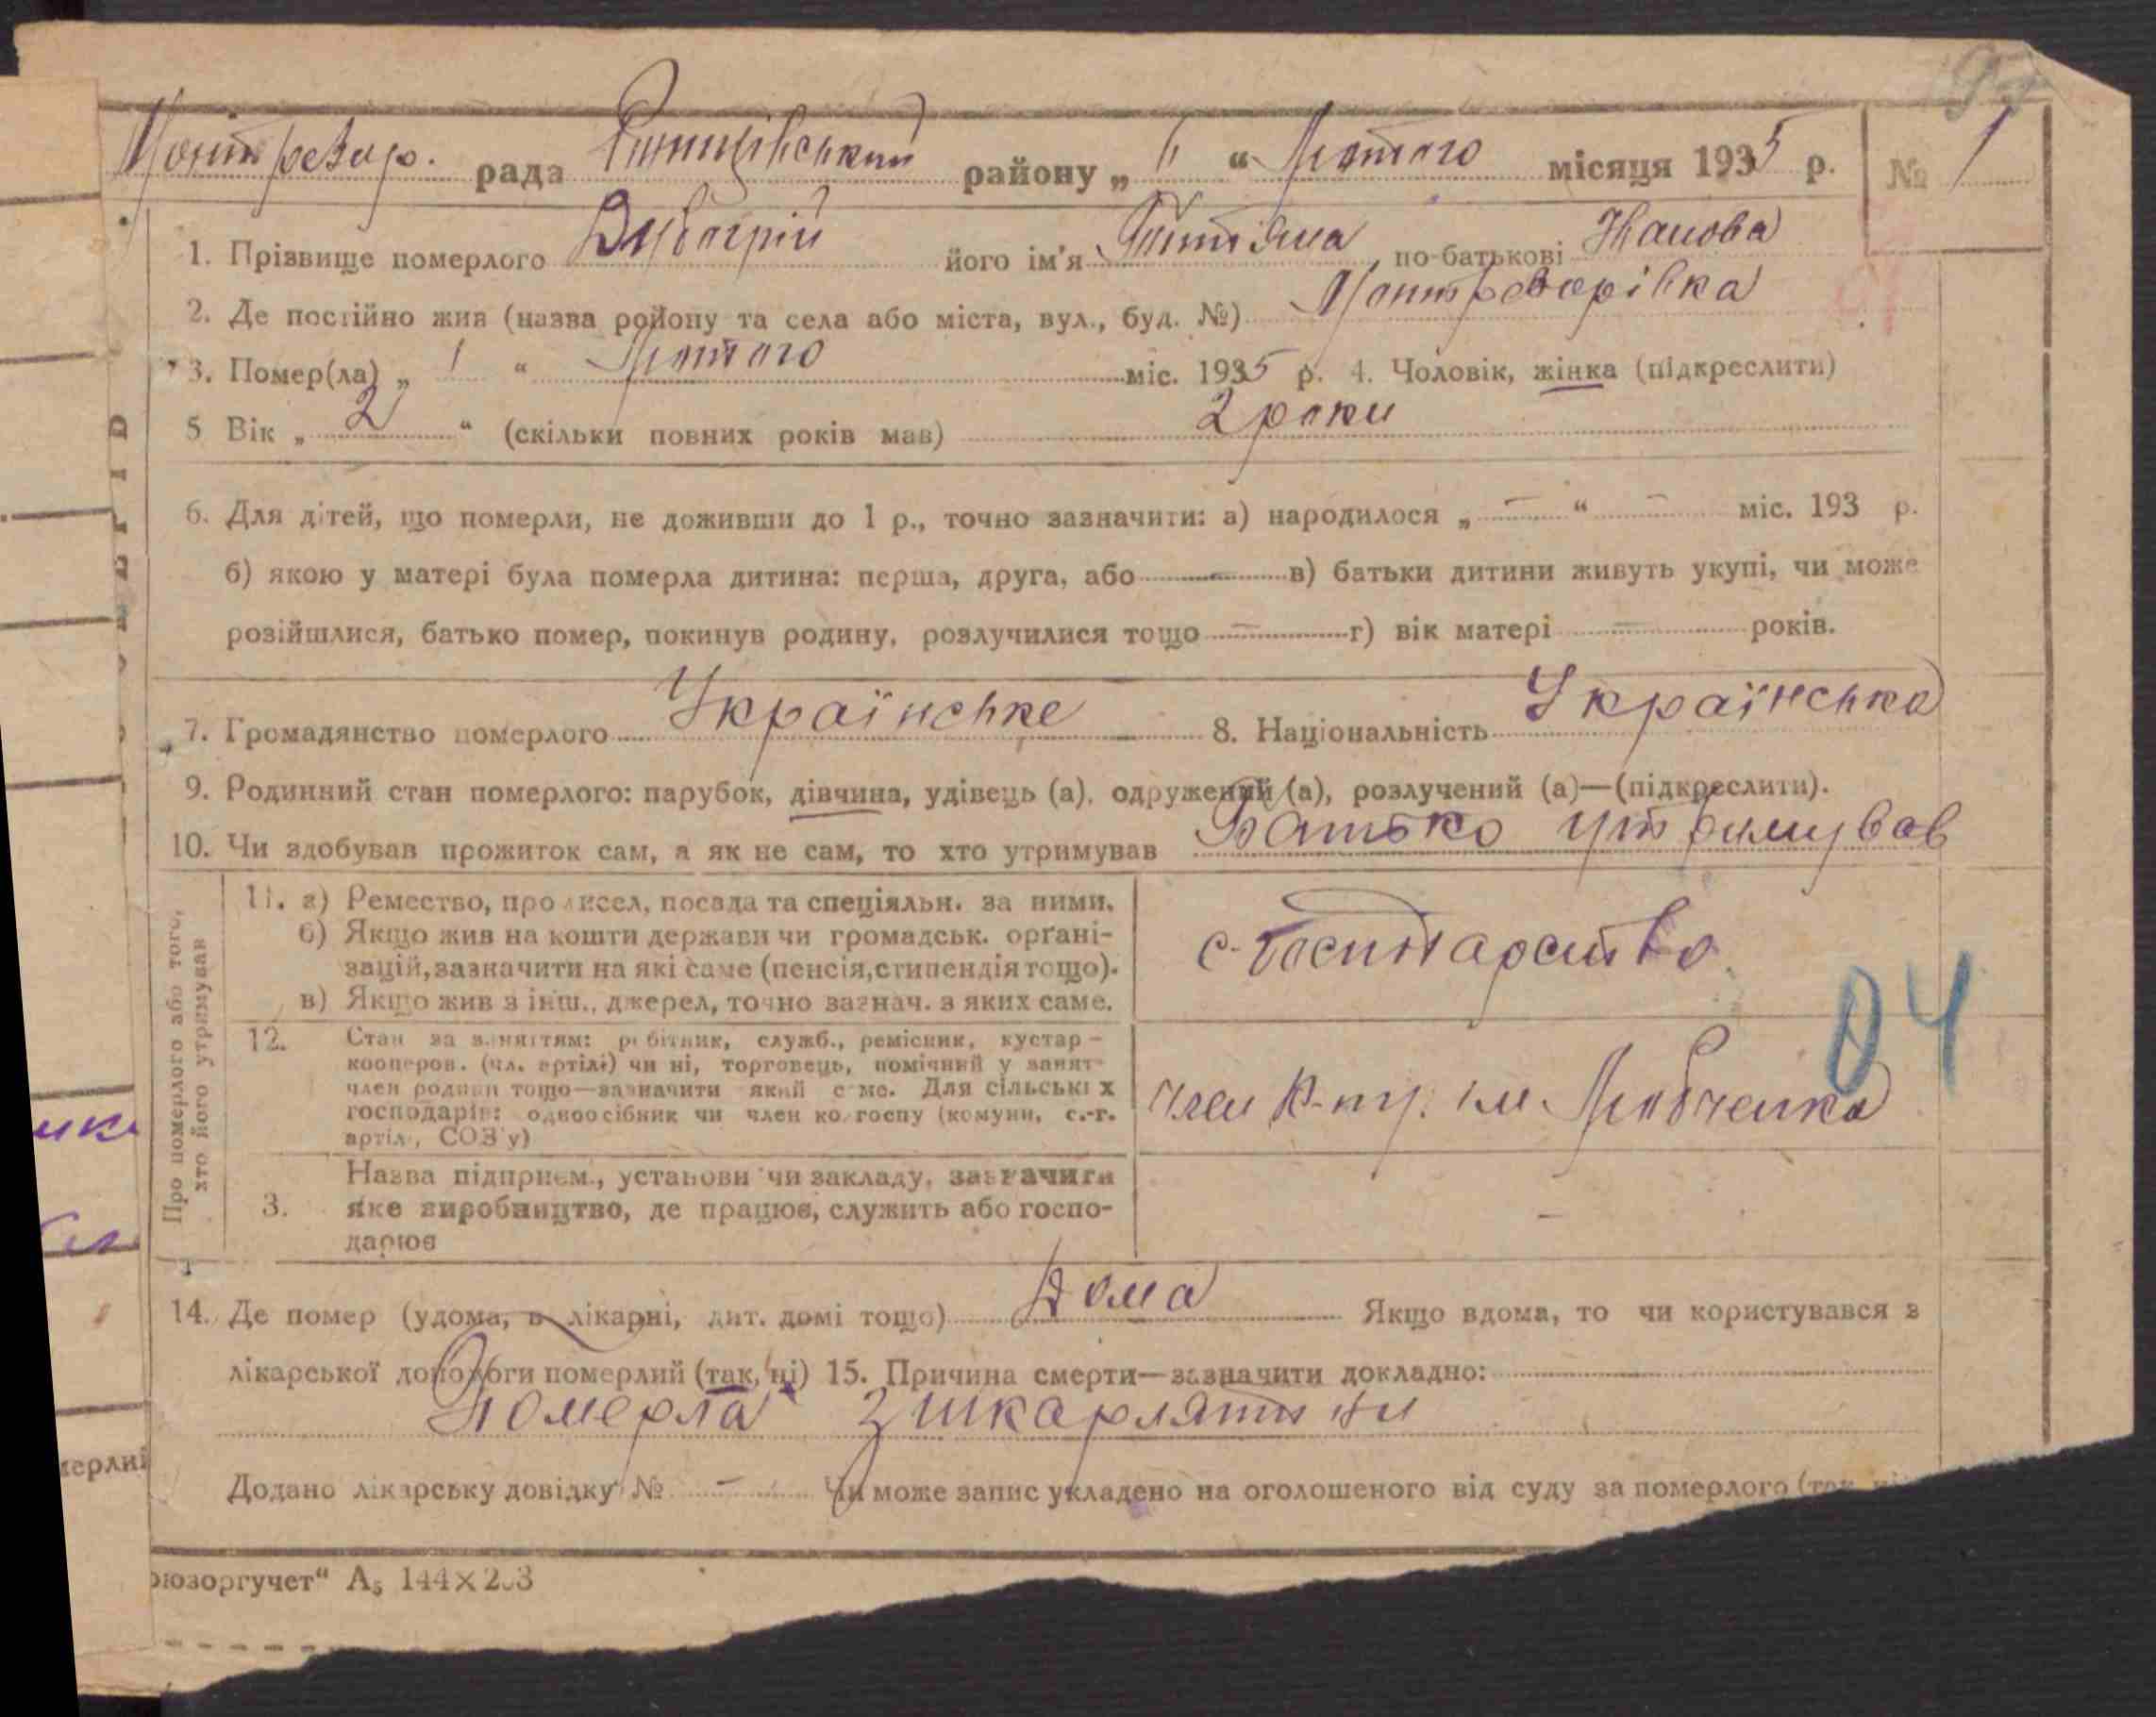 рада Ржищівський району „ 11 “ Лютого місяця 1935 р. № 1
1. Прізвище померлого його ім'я Титіяна по-батькові
2. Де постійно жив (назва району та села або міста, вул., буд. №) Монтрезорівка
3. Помер(ла) „ 1 “ Лютого міс. 1935 р. 4. Чоловік, жінка (підкреслити)
5 Вік „ 2 “ (скільки повних років мав) 2 роки
6. Для дітей, що померли, не доживши до 1 р., точно зазначити: а) народилося „ — “ — міс. 193 р.
б) якою у матері була померла дитина: перша, друга, або — в) батьки дитини живуть укупі, чи може
розійшлися, батько помер, покинув родину, розлучилися тощо — г) вік матері — років.
7. Громадянство померлого Українське 8. Національність Українська
9. Родинний стан померлого: парубок, дівчина, удівець (а), одружений (а), розлучений (а)—(підкреслити).
10. Чи здобував прожиток сам, а як не сам, то хто утримував Батько утримував
Про померлого або того,
хто його утримував
11. а) Ремество, промисел, посада та спеціяльн. за ними.
б) Якщо жив на кошти держави чи громадськ. орґані-
зацій, зазначити на які саме (пенсія, стипендія тощо).
в) Якщо жив з інш., джерел, точно зазнач. з яких саме.
с-господарство
04
12. Стан за заняттям: робітник, служб., ремісник, кустар –
кооперов. (чл. артілі) чи ні, торговець, помічний у занят.
член родини тощо—зазначити який саме. Для сільських
господарів: одноосібник чи член колгоспу (комуни, с.-г.
артіл., СОЗ'у)
член К-пу. ім Любченка
3. Назва підприєм., установи чи закладу, зазначити
яке виробництво, де працює, служить або госпо-
дарює
—
14. Де помер (удома, в лікарні, дит. домі тощо) Дома Якщо вдома, то чи користувався з
лікарської допомоги померлий (так, ні) 15. Причина смерти—зазначити докладно:
Померла з шкарлятини
Додано лікарську довідку № — Чи може запис укладено на оголошеного від суду за померлого (так, ні
юзоргучет“ А5 144×203
мерлий